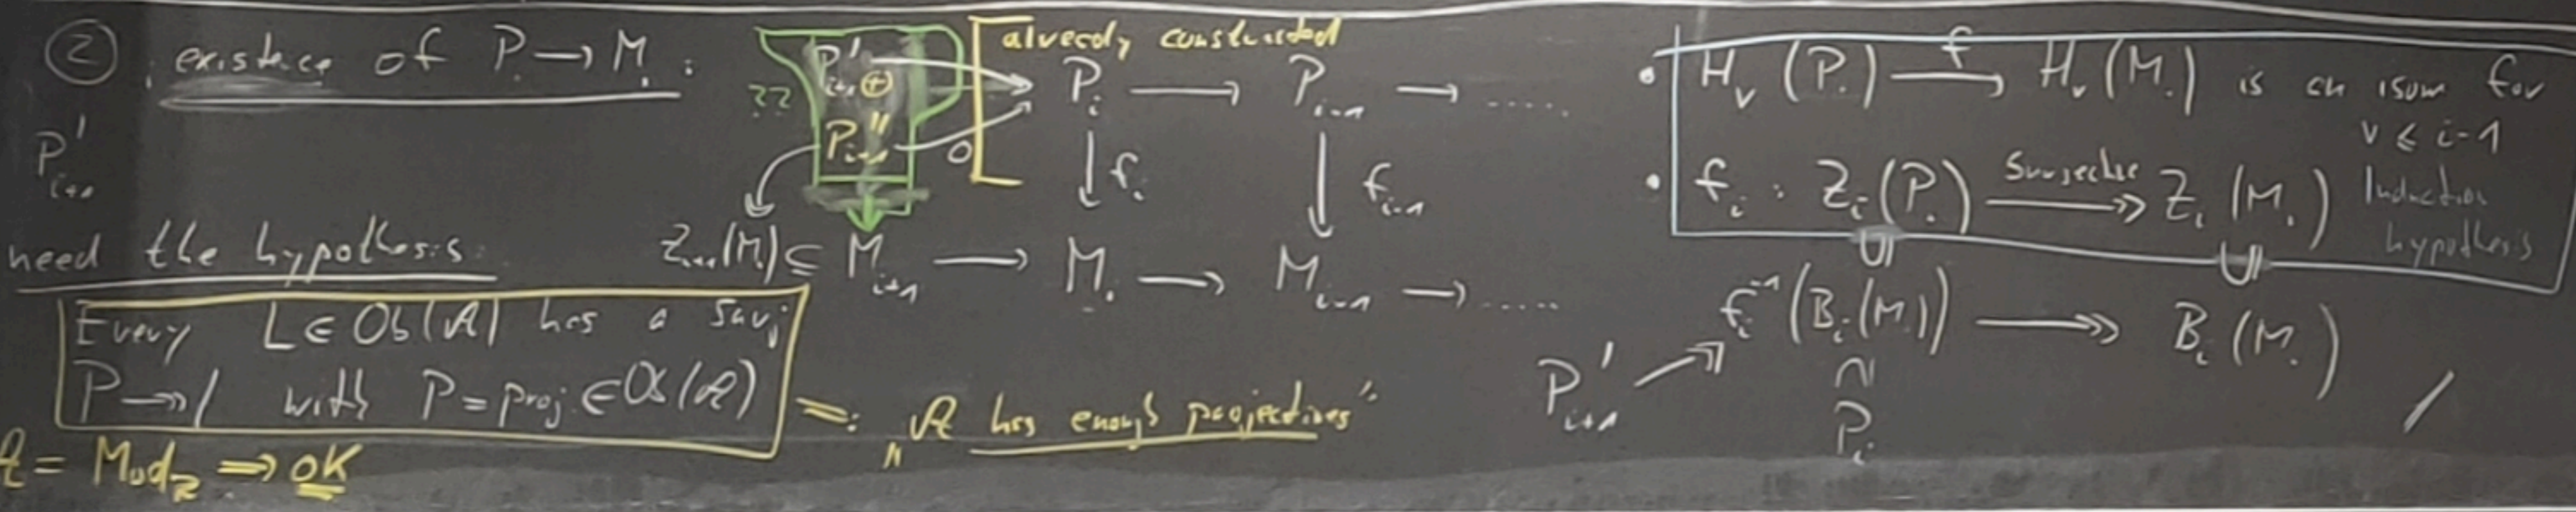 ② existence of P. → M. :
P'_{i+1}
need the hypothesis:
Every L ∈ Ob(A) has a surj
P ↠ L with P = proj. ∈ Ob(A)
=: „A has enough projectives"
A = Mod_R ⟹ OK
already constructed
?? P'_{i+1} ⊕ P''_{i+1} → P_i → P_{i-1} → .....
0
f_i f_{i-1}
Z_{i+1}(M.) ⊆ M_{i+1} → M_i → M_{i-1} → .....
• H_ν(P.) →^f H_ν(M.) is an isom for
ν ≤ i-1
• f_i : Z_i(P.) ↠ Z_i(M.)
surjective
Induction
hypothesis
∪| ∪|
f_i^{-1}(B_i(M.)) ↠ B_i(M.)
P'_{i+1} ↠
∩|
P_i